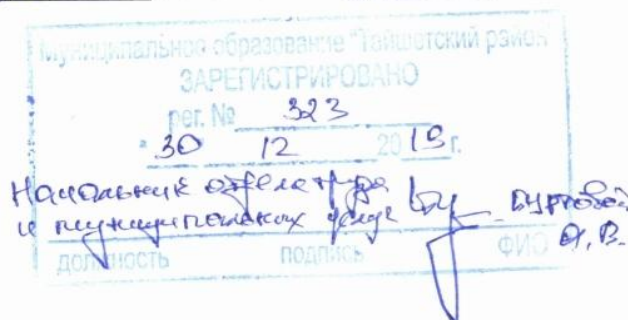 Муниципальное образование "Тайшетский район"
ЗАРЕГИСТРИРОВАНО
рег. № 323
"30 12 2019 г.
Начальник отдела труда
и муниципальных услуг
должность подпись ФИО